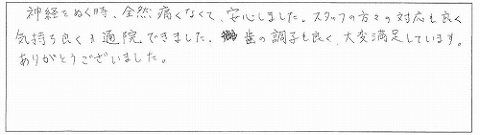 神経をぬく時、全然、痛くなくて、安心しました。スタッフの方々の対応も良く
気持ち良く通院できました、歯の調子も良く、大変満足しています。
ありがとうございました。